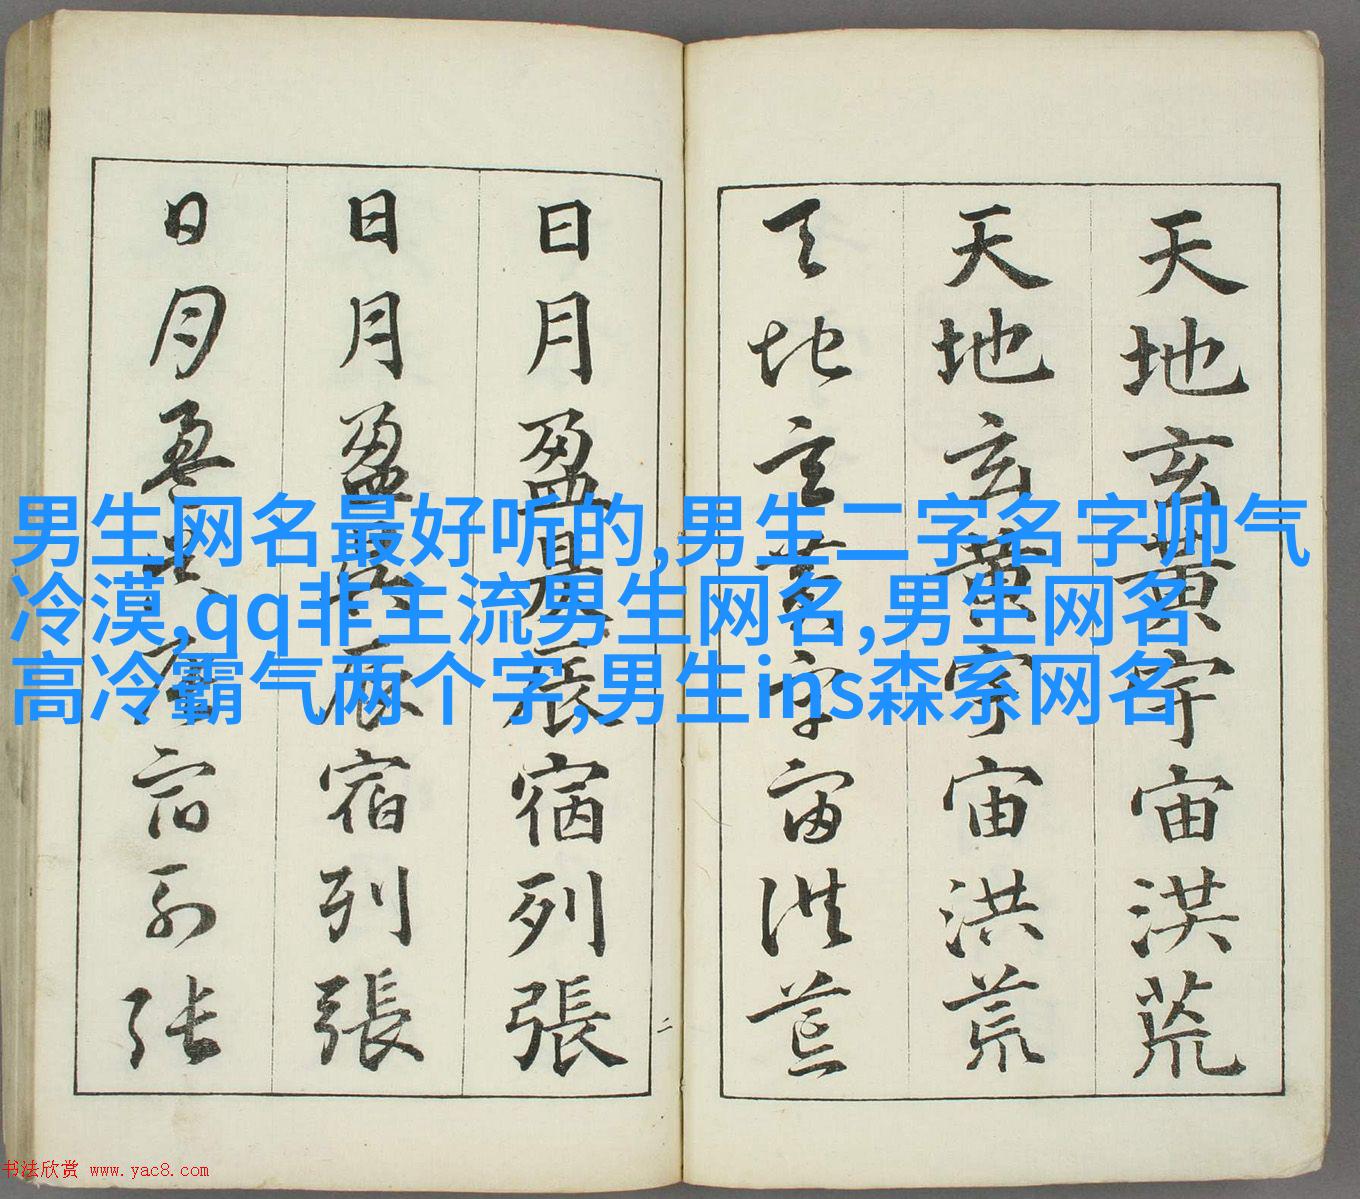 天地玄黃宇宙洪荒
天地玄黃宇宙洪荒
天地玄黃宇宙洪荒
日月盈昃辰宿列張
日月盈昃辰宿列張
日月盈昃辰宿列張
二
男生网名最好听的,男生二字名字帅气
冷漠,qq非主流男生网名,男生网名
高冷霸气两个字,男生ins森系网名
书法欣赏 www.yac8.com